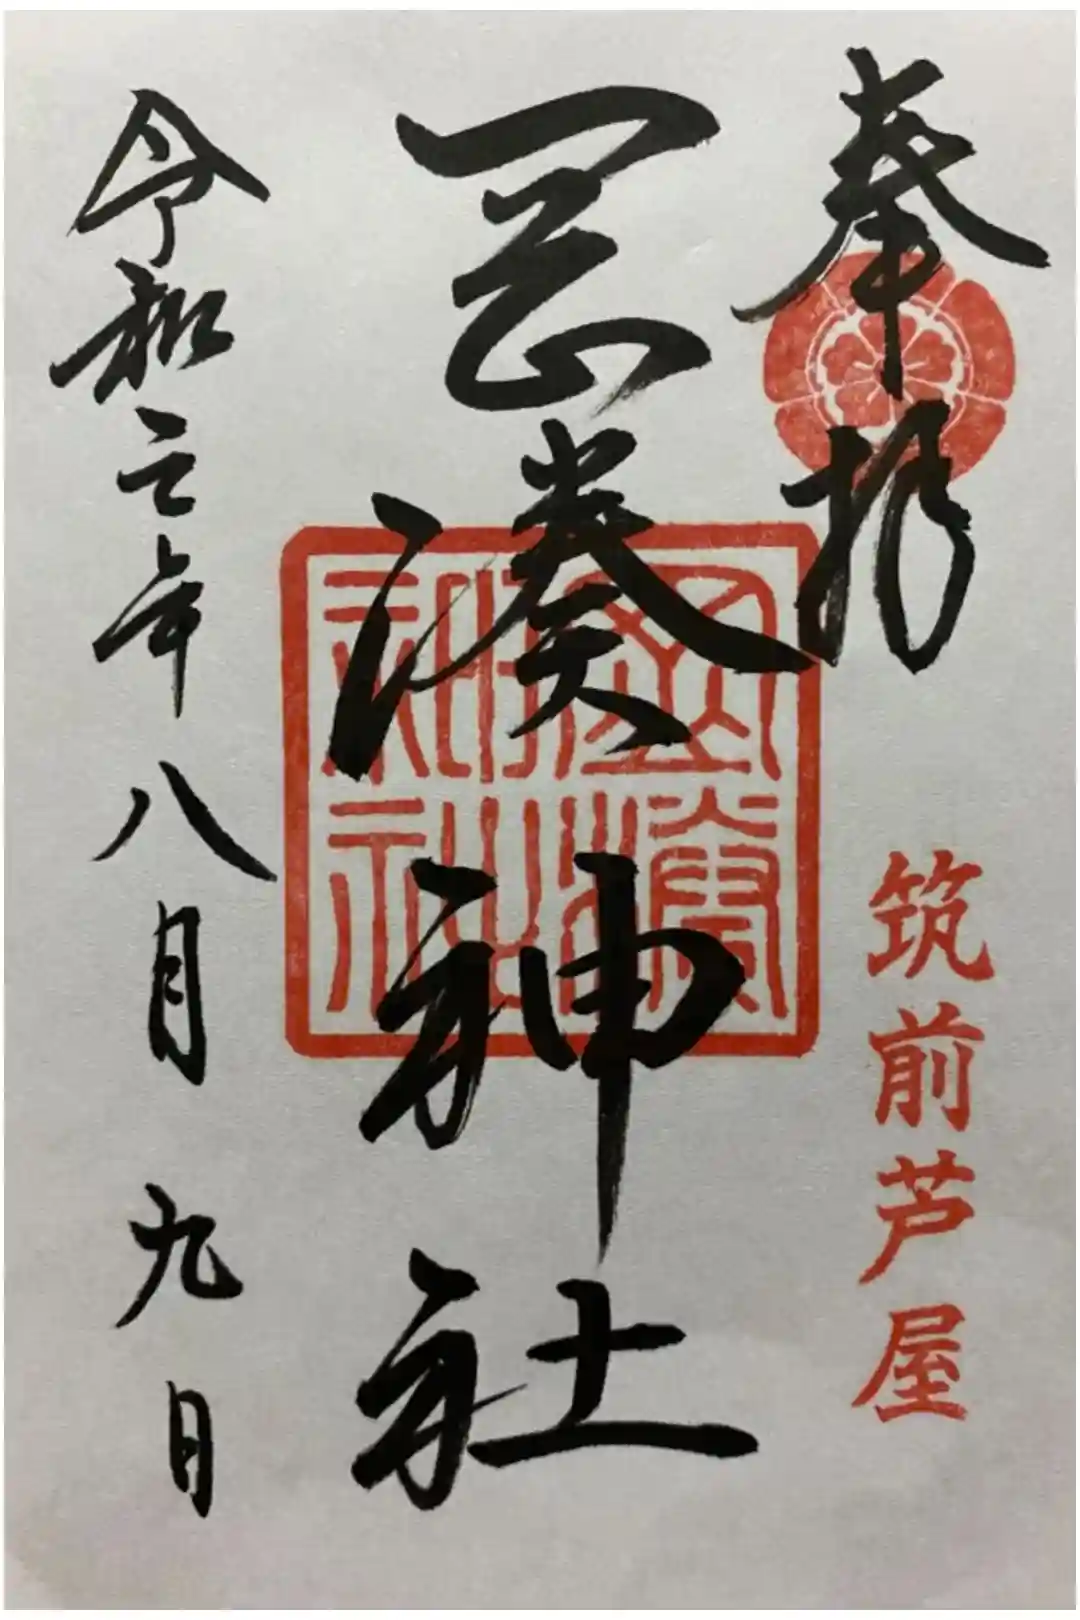 奉拝
筑前芦屋
岡湊神社
岡湊神社
令和元年八月九日